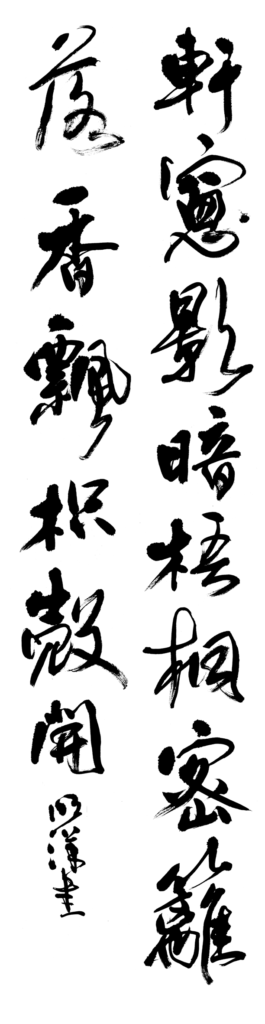 軒窻影暗梧桐密籬
落香飄枳殼開
明漢書